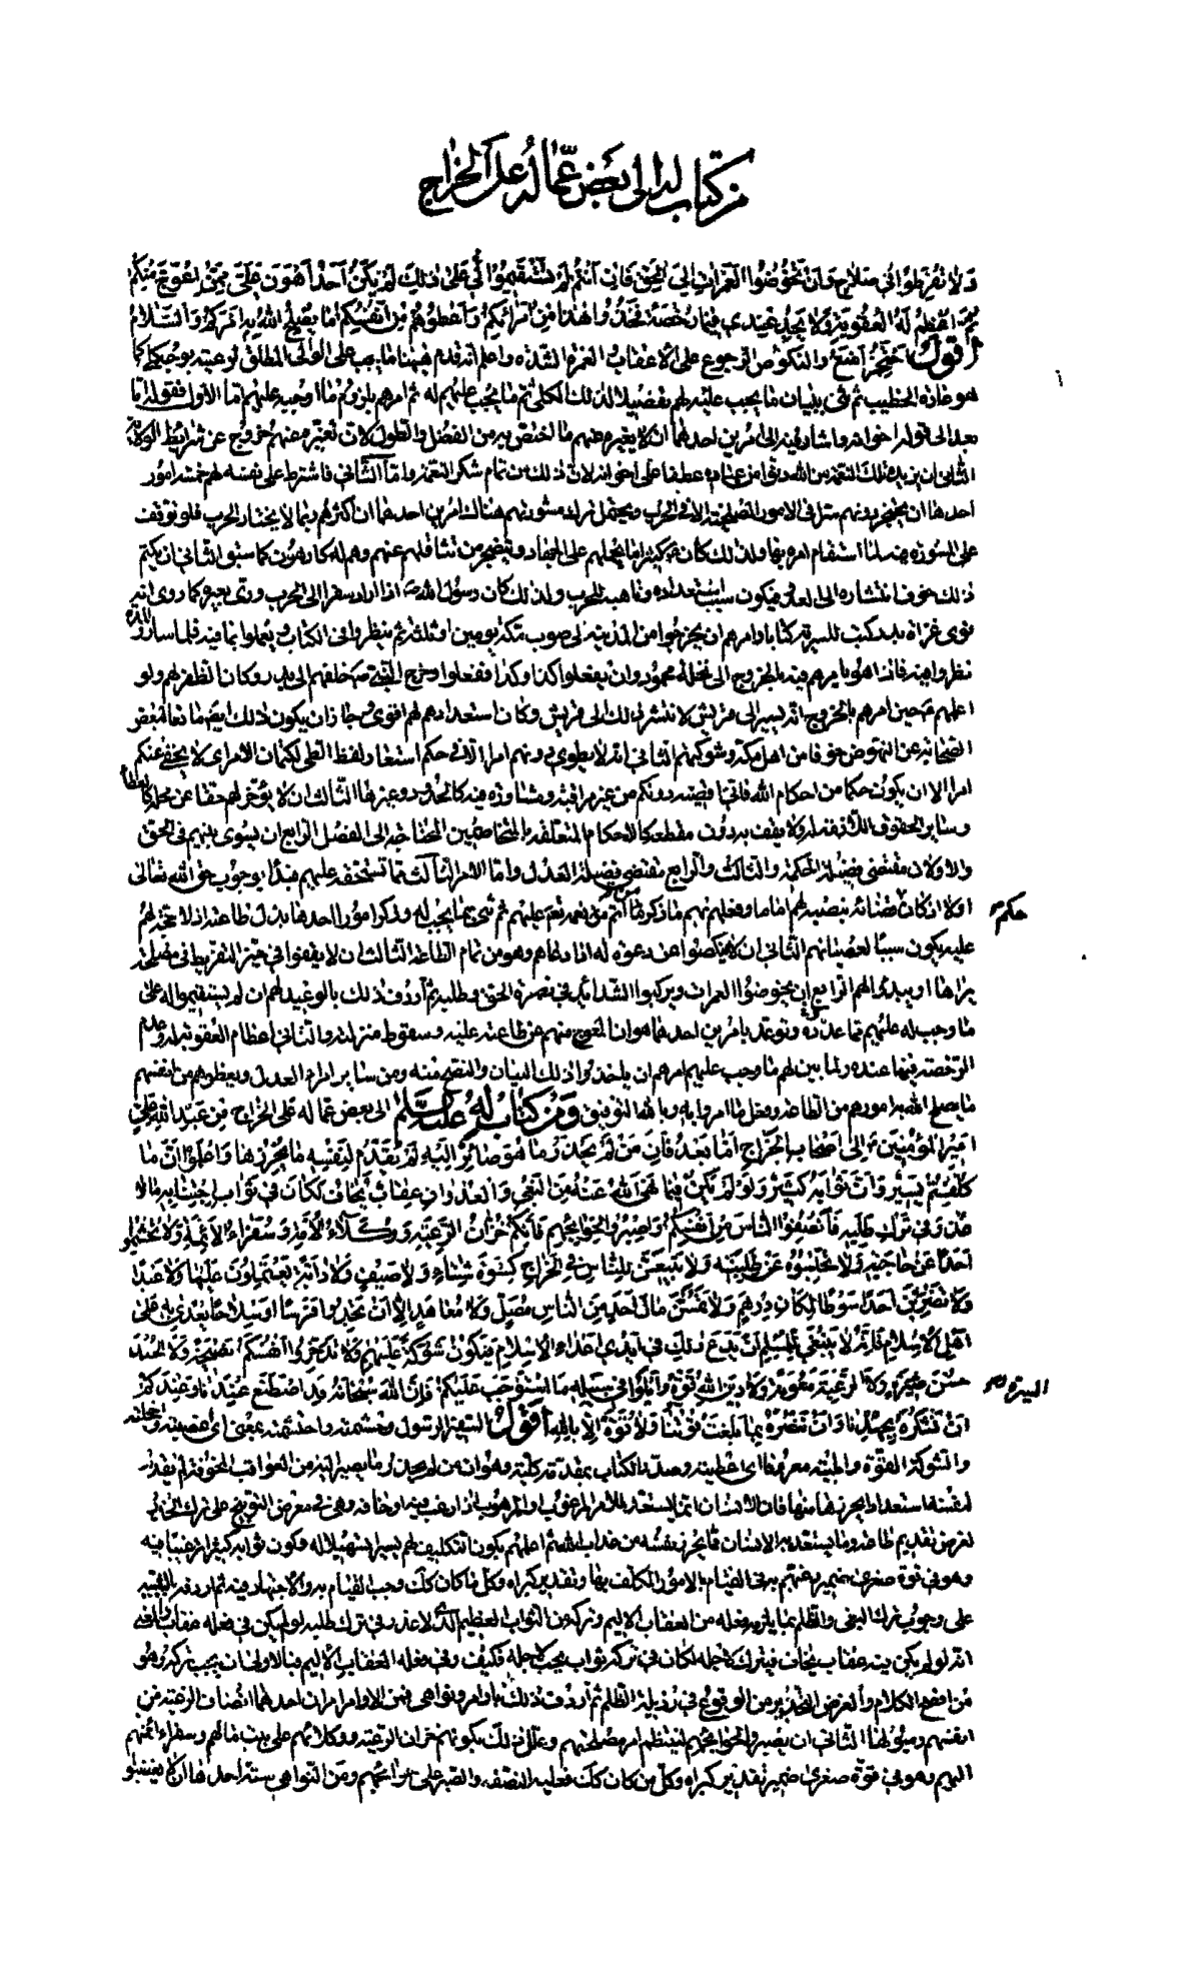 من كتاب له الى بعض عماله على الخراج
وَلا تُفَرِّطُوا فِي صَلاحٍ وَاَنْ تَخُوضُوا الْغَمَرَاتِ اِلَى الْحَقِّ فَاِنْ اَنْتُمْ لَمْ تَسْتَقِيمُوا لِي عَلَى ذلِكَ لَمْ يَكُنْ اَحَدٌ اَهْوَنَ عَلَيَّ مِمَّنِ اعْوَجَّ مِنْكُمْ
ثُمَّ اُعْظِمُ لَهُ الْعُقُوبَةَ وَلا يَجِدُ عِنْدِي فِيهَا رُخْصَةً فَخُذُوا هٰذَا مِنْ اُمَرَائِكُمْ وَاَعْطُوهُمْ مِنْ اَنْفُسِكُمْ مَا يُصْلِحُ اللهُ بِهِ اَمْرَكُمْ وَالسَّلامُ
اقول تحتجز امنع والنكوص الرجوع على الاعقاب الغمرة الشدة واعلم انه قدم هيهنا ما يجب على الوالى المطلق لرعيته بوجه كلى كما
هو عادة الخطيب ثم ثنى ببيان ما يجب عليه لهم تفصيلا لذلك الكلى ثم ما يجب عليهم له ثم امرهم بلزوم ما اوجبه عليهم اما الاول فقوله اما
بعد الى قوله اخوانه واشار فيه الى امرين احدهما ان لا يغيره عنهم ما اختص به من الفضل والطول لان تغيره عنهم خروج عن شرائط الولاية
الثانى ان يزيده تلك النعمة من الله دنوا من عباده وعطفا على اخوانه لان ذلك من تمام شكر النعمة واما الثانى فاشترط على نفسه لهم خمسة امور
احدها ان لا يحتجز دونهم سرا فى الامور المصلحية الا فى الحرب ويحتمل ترك مشورتهم هناك امرين احدهما ان اكثرهم ربما لا يختار الحرب فلو توقف
على المشورة فيه لما استقام امره بها ولذلك كان كثيرا ما يحملهم على الجهاد ويتضجر من تثاقلهم عنه وهم له كارهون كما سبق الثانى ان يكتم
ذلك خوف انتشاره الى العدو فيكون سبب استعداده وتاهبه للحرب ولذلك كان رسول الله ص اذا اراد سفرا الى الحرب ورى بغيره كما روى انه
نوى غزاة بدر كتب للسرية كتابا وامرهم ان يخرجوا من المدينة الى صوب مكة يومين او ثلثة ثم ينظروا فى الكتاب ويعملوا بما فيه فلما ساروا المدة
نظروا فيه فاذا هو يامرهم فيه بالخروج الى نخلة محمود وان يفعلوا كذا وكذا ففعلوا وخرج النبى ص خلفهم الى بدر وكان الظفر لهم ولو
اعلمهم حين امرهم بالخروج انه يسير الى قريش لانتشر ذلك الى قريش وكان استعدادهم لهم اقوى وجاز ان يكون ذلك ايضا مانعا لبعض
الصحابة عن النهوض خوفا من اهل مكة وشوكتهم الثانى ان لا يطوى دونهم امرا الا فى حكم استعار لفظ الطى لكتمان الامر اى لا يخفى عنكم
امرا الا ان يكون حكما من احكام الله فانى اقضيه دونكم من غير مراقبة ومشاورة فيه كالحدود وغيرها الثالث ان لا يؤخر لهم حقا عن محله كالعطاء
وسائر الحقوق اللازمة له ولا يقف به دون مقطعه كالاحكام المتعلقة بالمتخاصمين المحتاجة الى الفصل الرابع ان يسوى بينهم فى الحق
والاولان مقتضى فضيلة الحكمة والثالث والرابع مقتضى فضيلة العدل واما الامر الثالث مما تستحقه عليهم فبدأ بوجوب حق الله تعالى
اولا اذ كان قضائه بنصبه لهم اماما وفعله بهم ما ذكر من اتم نعمه عليهم ثم ثنى بما يجب له وذكر امورا احدها بذل طاعته اذ لا حجة لهم
حكم
عليه يكون سببا لعصيانهم الثانى ان لا ينكصوا عن دعوة له اذا دعاهم وهو من تمام الطاعة الثالث ان لا يفرطوا فى حيز التفريط فى مصلحة
يراها او يبدو لهم الرابع ان يخوضوا الغمرات ويركبوا الشدائد فى نصرة الحق وطلبه ثم اردف ذلك بالوعيد لهم ان لم يستقيموا له على
ما وجب له عليهم مما عدده وتوعد بامرين احدهما هوان المعوج منهم عن طاعته عليه وسقوط منزلته والثانى اعظام العقوبة له وعدم
الرخصة فيها عنده ولما بين لهم ما وجب عليهم امرهم ان ياخذوا ذلك البيان والنصح منه ومن سائر امراء العدل ويعطوهم من انفسهم
ما يصلح الله به امورهم من الطاعة وفعل ما امروا به وبالله التوفيق ومن كتاب له عليه السلم الى بعض عماله على الخراج مِنْ عَبْدِ اللهِ عَلِيٍّ
اَمِيرِ الْمُؤْمِنِينَ اِلَى اَصْحَابِ الْخَرَاجِ اَمَّا بَعْدُ فَاِنَّ مَنْ لَمْ يَحْذَرْ مَا هُوَ صَائِرٌ اِلَيْهِ لَمْ يُقَدِّمْ لِنَفْسِهِ مَا يُحْرِزُهَا وَاعْلَمُوا اَنَّ مَا
كُلِّفْتُمْ يَسِيرٌ وَاَنَّ ثَوَابَهُ كَثِيرٌ وَلَوْ لَمْ يَكُنْ فِيمَا نَهَى اللهُ عَنْهُ مِنَ الْبَغْيِ وَالْعُدْوَانِ عِقَابٌ يُخَافُ لَكَانَ فِي ثَوَابِ اجْتِنَابِهِ مَا لا
عُذْرَ فِي تَرْكِ طَلَبِهِ فَاَنْصِفُوا النَّاسَ مِنْ اَنْفُسِكُمْ وَاصْبِرُوا لِحَوَائِجِهِمْ فَاِنَّكُمْ خُزَّانُ الرَّعِيَّةِ وَوُكَلاءُ الْاُمَّةِ وَسُفَرَاءُ الْاَئِمَّةِ وَلا تُحْشِمُوا
اَحَدًا عَنْ حَاجَتِهِ وَلا تَحْبِسُوهُ عَنْ طَلِبَتِهِ وَلا تَبِيعُنَّ لِلنَّاسِ فِي الْخَرَاجِ كِسْوَةَ شِتَاءٍ وَلا صَيْفٍ وَلا دَابَّةً يَعْتَمِلُونَ عَلَيْهَا وَلا عَبْدًا
وَلا تَضْرِبُنَّ اَحَدًا سَوْطًا لِمَكَانِ دِرْهَمٍ وَلا تَمَسُّنَّ مَالَ اَحَدٍ مِنَ النَّاسِ مُصَلٍّ وَلا مُعَاهَدٍ اِلَّا اَنْ تَجِدُوا فَرَسًا اَوْ سِلاحًا يُعْدَى بِهِ عَلَى
اَهْلِ الْاِسْلامِ فَاِنَّهُ لا يَنْبَغِي لِلْمُسْلِمِ اَنْ يَدَعَ ذٰلِكَ فِي اَيْدِي اَعْدَاءِ الْاِسْلامِ فَيَكُونَ شَوْكَةً عَلَيْهِمْ وَلا تَدَّخِرُوا اَنْفُسَكُمْ نَصِيحَةً وَلا الْجُنْدَ
حُسْنَ سِيرَةٍ وَلا الرَّعِيَّةَ مَعُونَةً وَلا دِينَ اللهِ قُوَّةً وَاَبْلُوا فِي سَبِيلِهِ مَا اسْتَوْجَبَ عَلَيْكُمْ فَاِنَّ اللهَ سُبْحَانَهُ قَدِ اصْطَنَعَ عِنْدَنَا وَعِنْدَكُمْ
اَنْ نَشْكُرَهُ بِجُهْدِنَا وَاَنْ نَنْصُرَهُ بِمَا بَلَغَتْ قُوَّتُنَا وَلا قُوَّةَ اِلَّا بِاللهِ اقول السفير الرسول وحشمته واحتشمته بمعنى اى اغضبته واخجلته
والشوكة القوة وابليته معروفا اى اعطيته وصدر الكتاب بمقدمة كلية وهو ان من لم يحذر ما يصير اليه من العواقب المخوفة لم يقدم
لنفسه استعدادا يحرزها منها فان الانسان انما يستعد للامر المرغوب او المرهوب اذا رغب فيه او خافه وهى فى معرض التوبيخ على ترك الحذر
لغرض تقديم طاعة وما يستعد به الانسان مما يحرز نفسه من عذاب الله ثم اعلمهم بكون تكليفهم يسيرا تسهيلا له وكون ثوابه كثيرا ترغيبا فيه
وهو فى قوة صغرى ضمير رغبهم به فى القيام بالامور المكلف بها وتقدير كبراه وكل ما كان كك وجب القيام به والاجتهاد فيه ثم اردفه بالتنبيه
على وجوب ترك البغى والظلم بما يلزم فعله من العقاب الاليم وتركه من الثواب العظيم الذى لا عذر فى ترك طلبه لو لم يكن فى فعله عقاب والمعنى
انه لو لم يكن فيه عقاب يخاف فيترك لاجله لكان فى تركه ثواب يجب لاجله فكيف وفى فعله العقاب الاليم فبالاولى ان يجب تركه وهو
من افصح الكلام والغرض التحذير من الوقوع فى رذيلة الظلم ثم اردف ذلك باوامر ونواهى فمن الاوامر امران احدهما انصاف الرعية من
انفسهم وميولها الثانى ان يصبروا لحوائجهم لينتظم امر مصلحتهم وعلل ذلك بكونهم خزان الرعية ووكلائهم على بيت مالهم وسفراء ائمتهم
اليهم وهو فى قوة صغرى ضمير تقدير كبراه وكل من كان كك فعليه النصفة والصبر على حوائجهم ومن النواهى ستة احدها ان لا يغضبوا